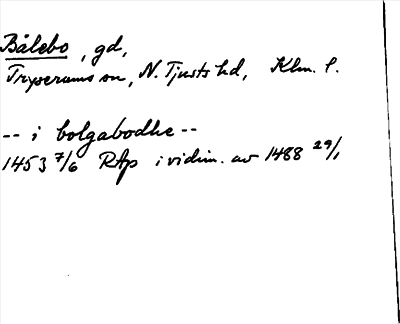 Bålebo, gd,
Tryserums sn, N. Tjusts hd, Klm. l.
-- i bolgabodhe --
1453 7/6 RAp i vidim. av 1488 29/1